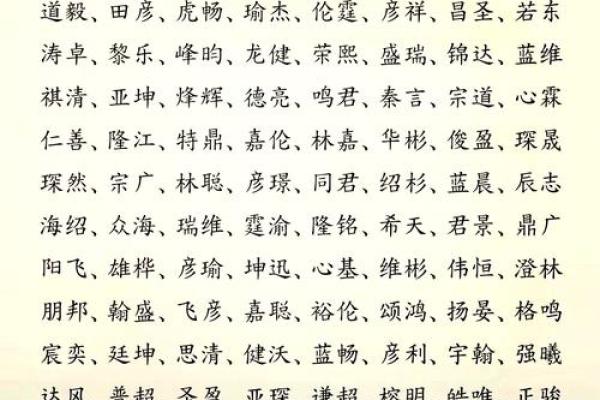 道毅、田彦、虎畅、瑜杰、伦霆、彦祥、昌圣、若东
涛卓、黎乐、峰昀、龙健、荣熙、盛瑞、锦达、蓝维
祺清、亚坤、烽辉、德亮、鸣君、秦言、宗道、心霖
仁善、隆江、特鼎、嘉伦、林嘉、华彬、俊盈、琛晟
琛然、宗广、林聪、彦璟、同君、绍杉、蓝晨、辰志
海绍、众海、瑞维、霆渝、隆铭、希天、君景、鼎广
阳飞、雄桦、彦瑜、坤迅、心基、维彬、伟恒、澄林
朋邦、翰盛、飞彦、嘉聪、裕伦、颂鸿、扬晏、格鸣
宸奕、廷坤、思清、健沃、蓝畅、彦利、宇翰、强曦
达风、普超、圣盈、亚琛、谦超、榕明、皓唯、正骏